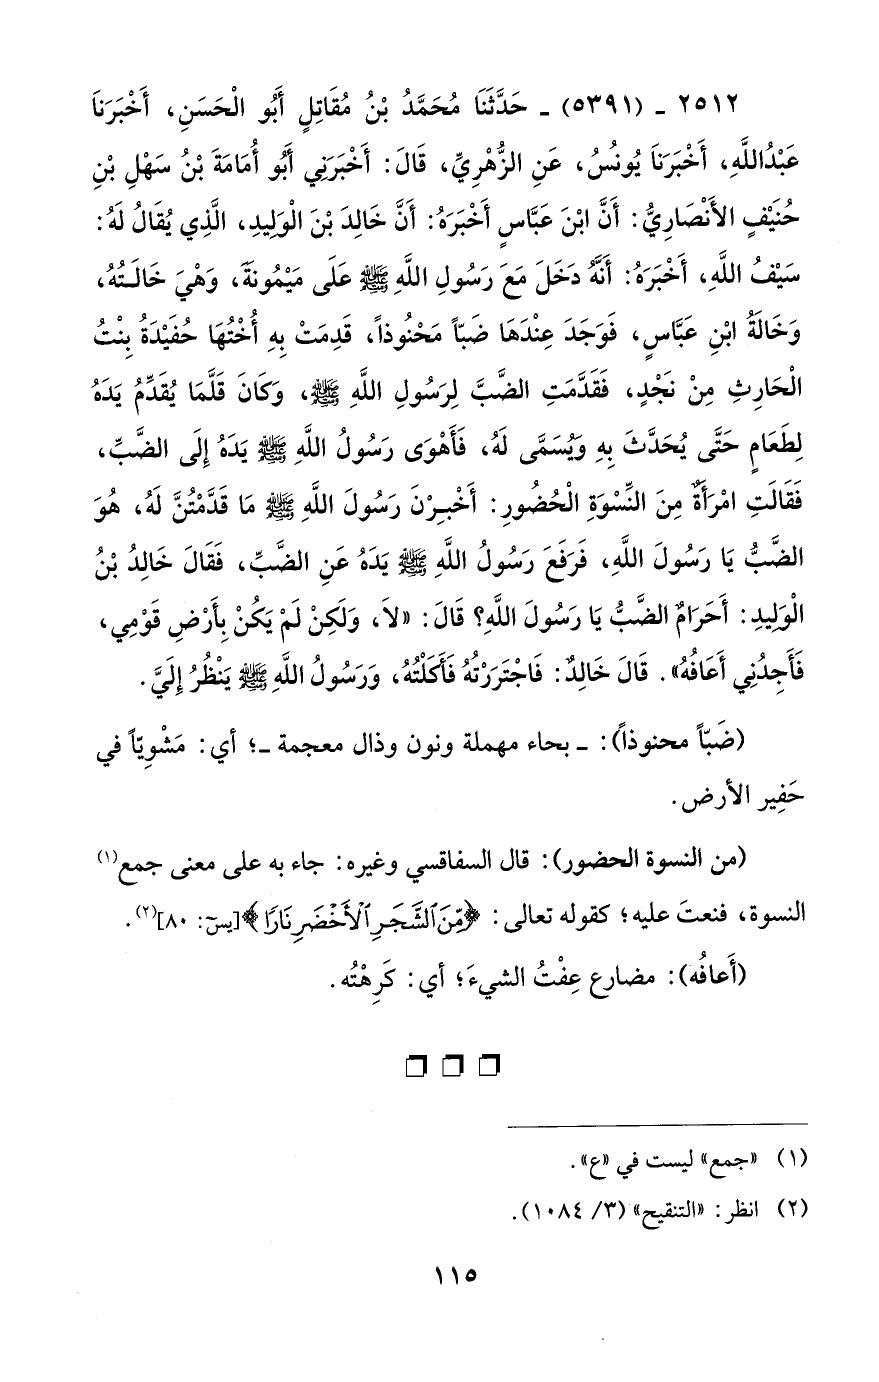 ٢٥١٢ ـ (٥٣٩١) ـ حَدَّثَنَا مُحَمَّدُ بْنُ مُقَاتِلٍ أَبُو الْحَسَنِ، أَخْبَرَنَا
عَبْدُاللَّهِ، أَخْبَرَنَا يُونُسُ، عَنِ الزُّهْرِيِّ، قَالَ: أَخْبَرَنِي أَبُو أُمَامَةَ بْنُ سَهْلِ بْنِ
حُنَيْفٍ الأَنْصَارِيُّ: أَنَّ ابْنَ عَبَّاسٍ أَخْبَرَهُ: أَنَّ خَالِدَ بْنَ الْوَلِيدِ، الَّذِي يُقَالُ لَهُ:
سَيْفُ اللَّهِ، أَخْبَرَهُ: أَنَّهُ دَخَلَ مَعَ رَسُولِ اللَّهِ ﷺ عَلَى مَيْمُونَةَ، وَهْيَ خَالَتُهُ،
وَخَالَةُ ابْنِ عَبَّاسٍ، فَوَجَدَ عِنْدَهَا ضَبّاً مَحْنُوذاً، قَدِمَتْ بِهِ أُخْتُهَا حُفَيْدَةُ بِنْتُ
الْحَارِثِ مِنْ نَجْدٍ، فَقَدَّمَتِ الضَّبَّ لِرَسُولِ اللَّهِ ﷺ، وَكَانَ قَلَّمَا يُقَدِّمُ يَدَهُ
لِطَعَامٍ حَتَّى يُحَدَّثَ بِهِ وَيُسَمَّى لَهُ، فَأَهْوَى رَسُولُ اللَّهِ ﷺ يَدَهُ إِلَى الضَّبِّ،
فَقَالَتِ امْرَأَةٌ مِنَ النِّسْوَةِ الْحُضُورِ: أَخْبِرْنَ رَسُولَ اللَّهِ ﷺ مَا قَدَّمْتُنَّ لَهُ، هُوَ
الضَّبُّ يَا رَسُولَ اللَّهِ، فَرَفَعَ رَسُولُ اللَّهِ ﷺ يَدَهُ عَنِ الضَّبِّ، فَقَالَ خَالِدُ بْنُ
الْوَلِيدِ: أَحَرَامٌ الضَّبُّ يَا رَسُولَ اللَّهِ؟ قَالَ: «لاَ، وَلَكِنْ لَمْ يَكُنْ بِأَرْضِ قَوْمِي،
فَأَجِدُنِي أَعَافُهُ». قَالَ خَالِدٌ: فَاجْتَرَرْتُهُ فَأَكَلْتُهُ، وَرَسُولُ اللَّهِ ﷺ يَنْظُرُ إِلَيَّ.
(ضَبّاً محنوذاً): ـ بحاء مهملة ونون وذال معجمة ـ؛ أي: مَشْوِيّاً في
حَفِير الأرض.
(من النسوة الحضور): قال السفاقسي وغيره: جاء به على معنى جمع(١)
النسوة، فنعتَ عليه؛ كقوله تعالى: ﴿مِّنَ ٱلشَّجَرِ ٱلْأَخْضَرِ نَارًا﴾[يسٓ: ٨٠](٢).
(أَعافُه): مضارع عِفْتُ الشيءَ؛ أي: كَرِهْتُه.
(١) «جمع» ليست في «ع».
(٢) انظر: «التنقيح» (٣/ ١٠٨٤).
١١٥